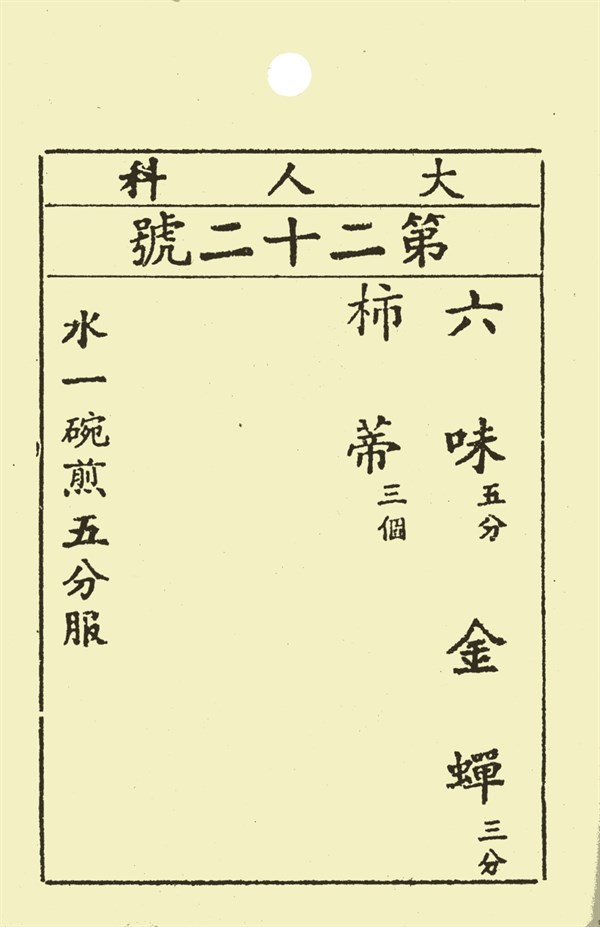 大人科
第二十二號
六味五分金蟬三分
柿蒂三個
水一碗煎五分服